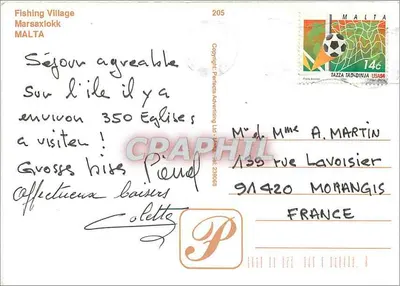 Fishing Village
Marsaxlokk
MALTA
205
Séjour agreable
Sur l'ile il y a
environ 350 Eglises
a visiter !
Grosses bises
Affectueux baisers
Colette
Copyright: Perfecta Advertising Ltd.
CRAPHIL
MALTA
14c
TAZZA TAD-DINJA USA94
Mr et Mme A. MARTIN
139 rue Lavoisier
91420 MORANGIS
FRANCE
P